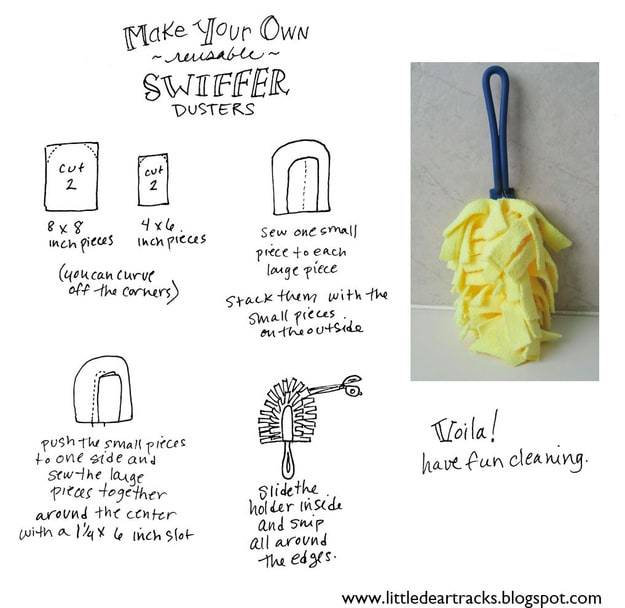 Make Your Own
~ reusable ~
SWIFFER
DUSTERS
cut
2
8 x 8
inch pieces
cut
2
4 x 6
inch pieces
(you can curve
off the corners)
Sew one small
piece to each
large piece
Stack them with the
small pieces
on the outside
push the small pieces
to one side and
sew the large
pieces together
around the center
with a 1 1/4 x 6 inch slot
Slide the
holder inside
and snip
all around
the edges.
Voila!
have fun cleaning.
www.littledeartracks.blogspot.com